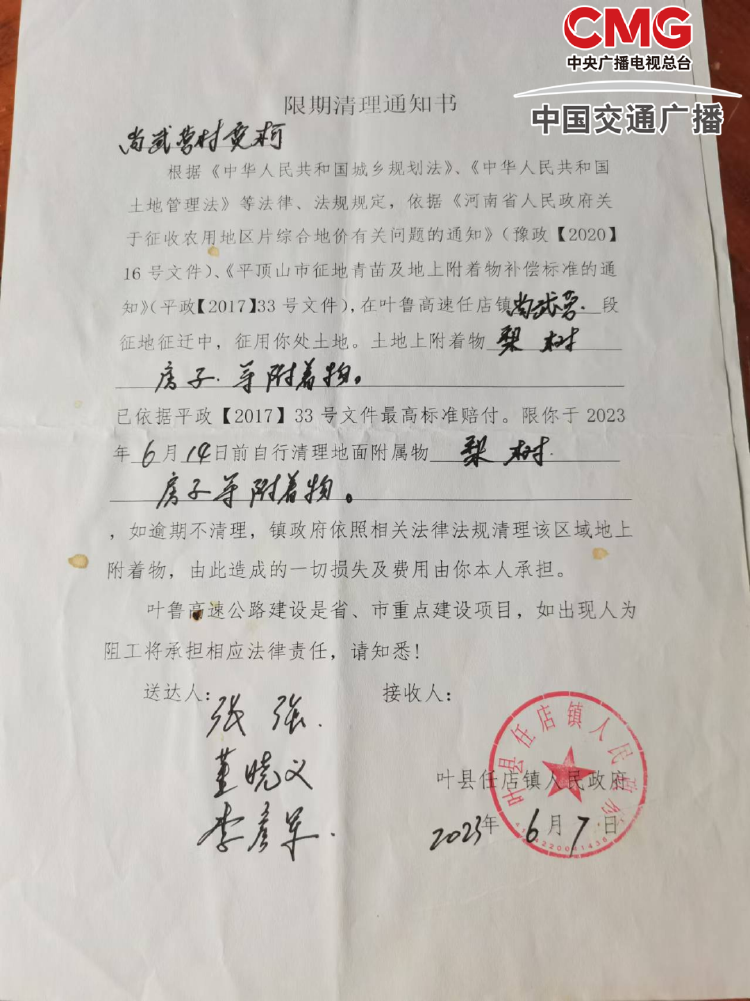 CMG
中央广播电视总台
中国交通广播
限期清理通知书
尚武营村 柯
根据《中华人民共和国城乡规划法》、《中华人民共和国
土地管理法》等法律、法规规定，依据《河南省人民政府关
于征收农用地区片综合地价有关问题的通知》（豫政【2020】
16号文件）、《平顶山市征地青苗及地上附着物补偿标准的通
知》（平政【2017】33号文件），在叶鲁高速任店镇尚武营.段
征地征迁中，征用你处土地。土地上附着物 梨树
房子.等附着物。
已依据平政【2017】33号文件最高标准赔付。限你于2023
年6月14日前自行清理地面附属物 梨树.
房子等附着物。
，如逾期不清理，镇政府依照相关法律法规清理该区域地上
附着物，由此造成的一切损失及费用由你本人承担。
叶鲁高速公路建设是省、市重点建设项目，如出现人为
阻工将承担相应法律责任，请知悉！
送达人： 接收人：
张强.
董晓义
李彦军.
叶县任店镇人民政府
2023年6月7日
叶县任店镇人民政府